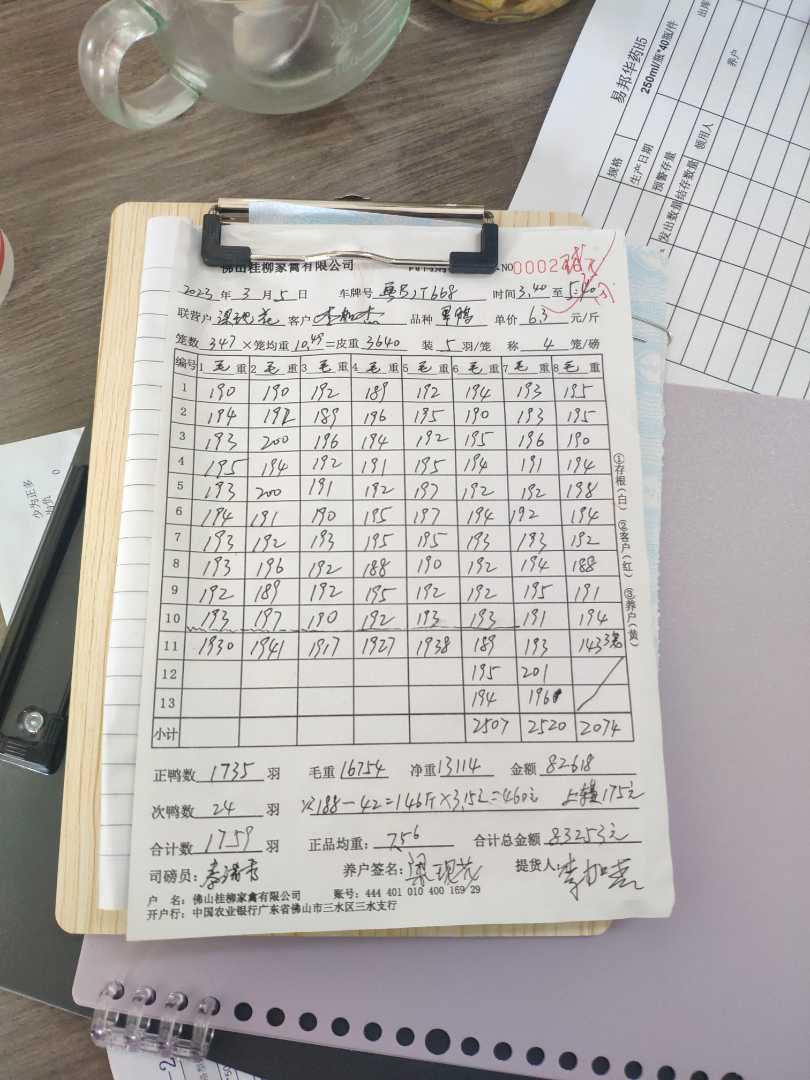 易邦华药115
250ml/瓶*40瓶/件
出库
养户
规格
生产日期
预警存量
发出数量
结存数量
领用人
佛山桂柳家禽有限公司
NO
2023 年 3 月 5 日 车牌号 时间 3.40 至 5:40
联营户 客户 品种 单价 6.3 元/斤
笼数 347 ×笼均重 10.49 =皮重 3640 装 5 羽/笼 称 4 笼/磅
编号 1 毛 重 2 毛 重 3 毛 重 4 毛 重 5 毛 重 6 毛 重 7 毛 重 8 毛 重
1 190 190 192 189 192 194 193 195
2 194 191 189 196 195 190 193 195
3 193 200 196 194 192 195 196 190
4 195 194 192 191 195 194 191 194
5 193 200 191 192 197 192 192 198
6 194 191 190 195 197 194 192 194
7 193 192 193 195 195 193 193 192
8 193 196 192 188 190 192 194 188
9 192 189 192 195 192 192 195 191
10 193 197 190 192 193 193 191 194
11 1930 1941 1917 1927 1938 189 193 143 3笼
12 195 201
13 194 196
小计 2507 2520 2074
①存根(白) ②客户(红) ③养户(黄)
正鸭数 1735 羽 毛重 16754 净重 13114 金额 82618
次鸭数 24 羽 次188-42=146斤×3.15元=460元 175元
合计数 1759 羽 正品均重: 7.56 合计总金额 83253元
司磅员: 养户签名: 梁现花 提货人:
户 名: 佛山桂柳家禽有限公司 账号: 444 401 010 400 169 29
开户行: 中国农业银行广东省佛山市三水区三水支行